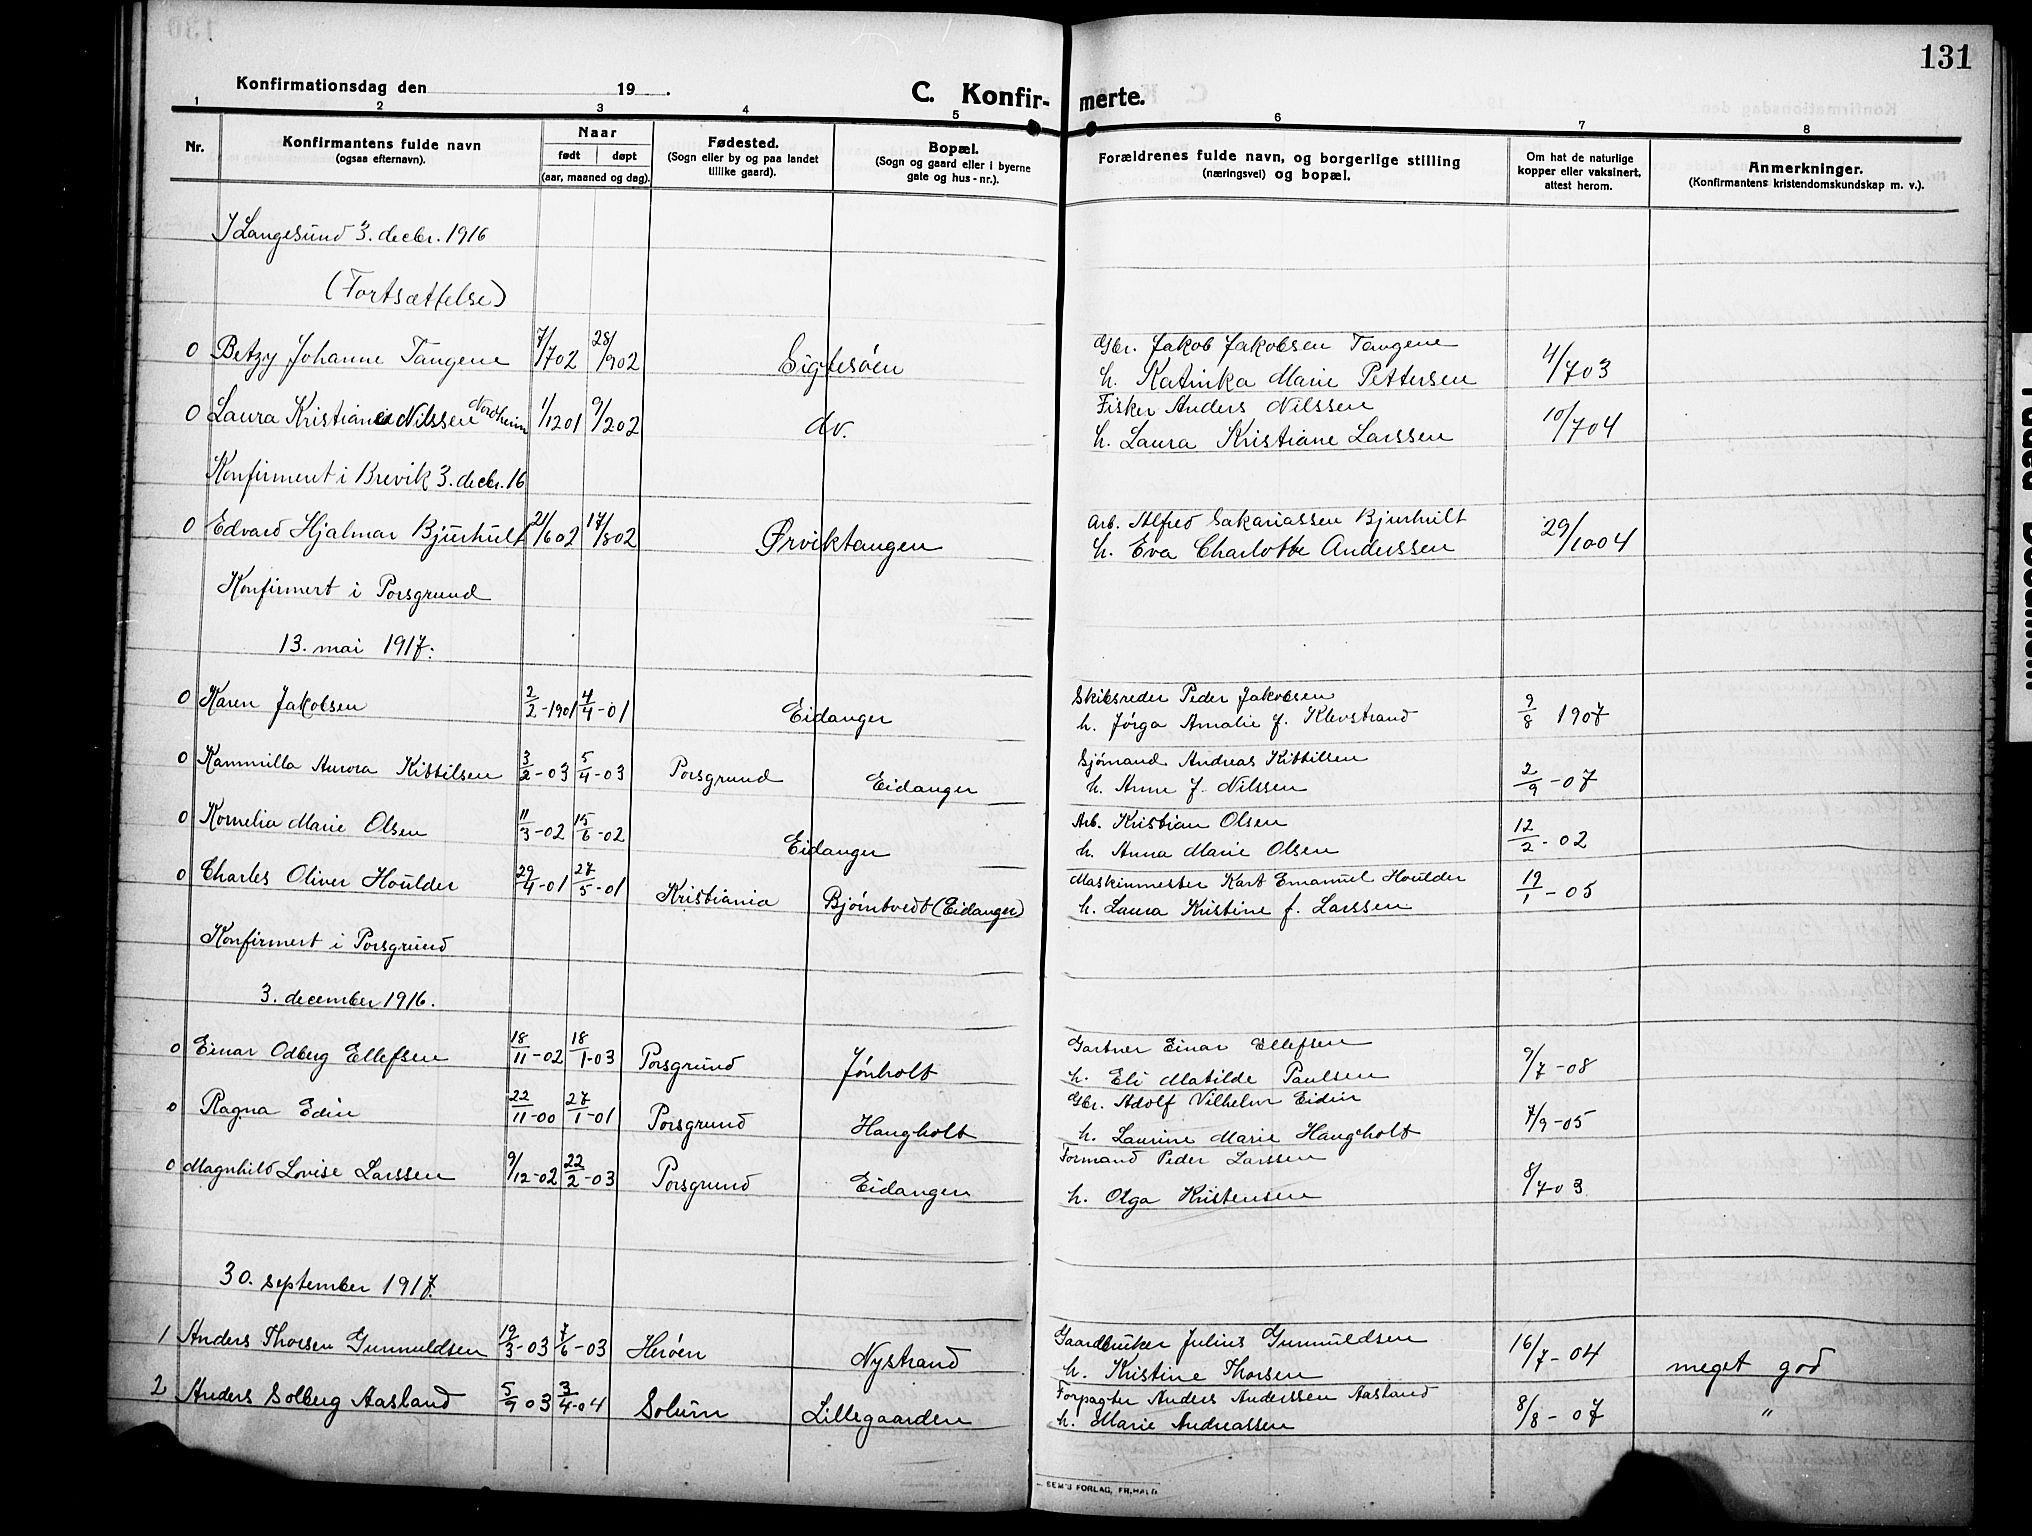 131
Konfirmationsdag den 19 .
C. Konfir- merte.
1 2 3 4 5 6 7 8
Nr.
Konfirmantens fulde navn
(ogsaa efternavn).
Naar
født døpt
(aar, maaned og dag).
Fødested.
(Sogn eller by og paa landet
tillike gaard).
Bopæl.
(Sogn og gaard eller i byerne
gate og hus-nr.).
Forældrenes fulde navn, og borgerlige stilling
(næringsvei) og bopæl.
Om hat de naturlige
kopper eller vaksinert,
attest herom.
Anmerkninger.
(Konfirmantens kristendomskundskap m. v.).
I Langesund 3. decbr. 1916
(Fortsættelse)
0 Betzy Johanne Tangene 7/1 702 28/902 Sigtesøen Gbr. Jakob Jakobsen Tangene
h. Katinka Marie Pettersen 4/703
0 Laura Kristiane Nilssen Nordheim 1/1201 9/202 do. Fisker Anders Nilssen
h. Laura Kristiane Larssen 10/704
Konfirmert i Brevik 3. decbr. 16
0 Edvard Hjalmar Bjurhult 21/602 17/802 Ørviktangen Arb. Alfred Sakariassen Bjurhult
h. Eva Charlotte Anderssen 29/1004
Konfirmert i Porsgrund
13. mai 1917:
0 Karen Jakobsen 2/2-1901 4/4-01 Eidanger Skibsreder Peder Jakobsen
h. Jørga Amalie f. Klevstrand 9/8 1907
0 Kammilla Aurora Kittilsen 3/2-03 5/4-03 Porsgrund Eidanger Sjømand Andreas Kittilsen
h. Anne f. Nilssen 2/9-07
0 Kornelia Marie Olsen 11/3-02 15/6-02 Eidanger Arb. Kristian Olsen
h. Anna Marie Olsen 12/2-02
0 Charles Oliver Houlder 29/4-01 27/5-01 Kristiania Bjørntvedt (Eidanger) Maskinmester Karl Emanuel Houlder
h. Laura Kristine f. Larssen 19/1-05
Konfirmert i Porsgrund
3. december 1916.
0 Einar Odberg Ellefsen 18/11-02 18/1-03 Porsgrund Jønholt Gartner Einar Ellefsen
h. Eli Matilde Paulsen 9/7-08
0 Ragna Edin 22/11-00 27/1-01 Porsgrund Haugholt Gbr. Adolf Vilhelm Eidin
h. Laurine Marie Haugholt 7/9-05
0 Magnhild Lovise Larssen 9/12-02 22/2-03 Porsgrund Eidanger Formand Peder Larssen
h. Olga Kristensen 8/703
30. september 1917.
1 Anders Thorsen Gunnuldsen 19/3-03 7/6-03 Herøen Nystrand Gaardbruker Julius Gunnuldsen
h. Kristine Thorsen 16/7-04 meget god
2 Anders Solberg Aasland 5/9 03 3/4-04 Solum Lillegaarden Forpagter Anders Anderssen Aasland
h. Marie Andreassen 8/8-07 "
SEM'S FORLAG, FR.HALD